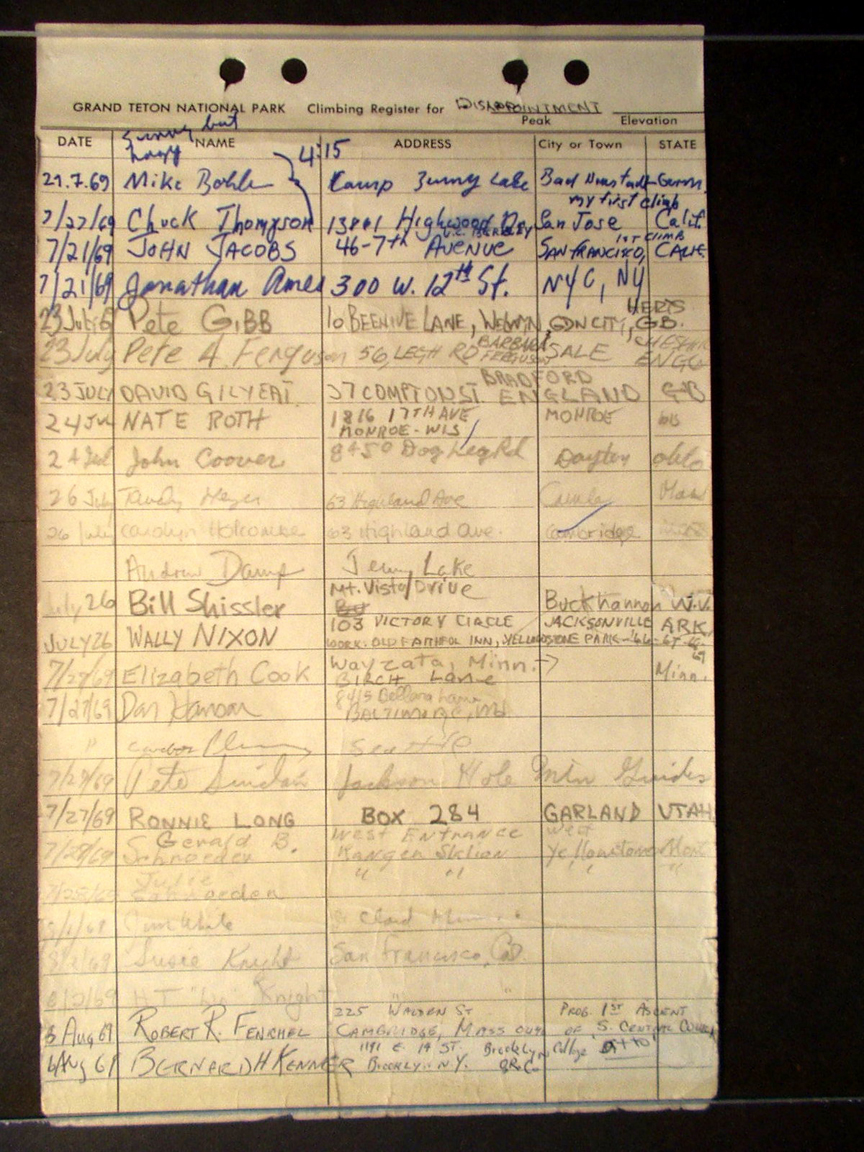 GRAND TETON NATIONAL PARK Climbing Register for DISAPPOINTMENT
Peak Elevation
DATE NAME ADDRESS City or Town STATE
sunny but
4:15
21.7.69 Mike Camp Lake Bad
my first climb
7/27/69 Chuck Thompson 13801 Highwood Dr San Jose Calif.
U.C. BERKELEY 1ST CLIMB
7/21/69 JOHN JACOBS 46-7th AVENUE SAN FRANCISCO, CALIF.
7/21/69 Jonathan Ames 300 W. 12th St. NYC, NY
HERTS
23 July Pete GIBB 10 BEEHIVE LANE, WELWYN GDN CITY, GB.
BARBARA CHESHIRE
23 July Pete A. Ferguson 56, LEGH RD FERGUSON SALE ENG
BRADFORD
23 JULY DAVID GILYEAT 37 COMPTON ST. ENGLAND GB
24 Jul NATE ROTH 1816 17TH AVE MONROE WIS
MONROE-WIS
24 Jul John Coover 8450 Dog Leg Rd Dayton ohio
26 July 63 Highland Ave Mass
26 July Carolyn Holcombe 63 Highland Ave. Cambridge
Andrew Jenny Lake
Mt. Vista Drive
July 26 Bill Shissler Buckhannon W.V.
103 VICTORY CIRCLE JACKSONVILLE ARK
JULY 26 WALLY NIXON WORK-OLD FAITHFUL INN, YELLOWSTONE PARK-'66-67-68
69
Wayzata, Minn. →
7/27/69 Elizabeth Cook BIRCH Lane Minn.
8415 Bellona Lane
7/27/69 Dan Hanson BALTIMORE, Md
" Seattle
7/27/69 Pete Sinclair Jackson Hole Mtn Guides
7/27/69 RONNIE LONG BOX 284 GARLAND UTAH
Gerald B. West Entrance West
7/28/69 Schroeder Ranger Station Yellowstone Mont
Julie " " " "
7/28/69 Schroeder
Jim White
8/2/69 Susie Knight San Francisco, Ca.
8/2/69 H.T. Knight "
225 WALDEN ST PROB. 1ST ASCENT
6 Aug 69 ROBERT R. CAMBRIDGE, MASS OF S. CENTRAL
1191 E. 19 ST. Brooklyn College ditto
6 Aug 69 BERNARD H KENNER BROOKLYN N.Y. GR. C.